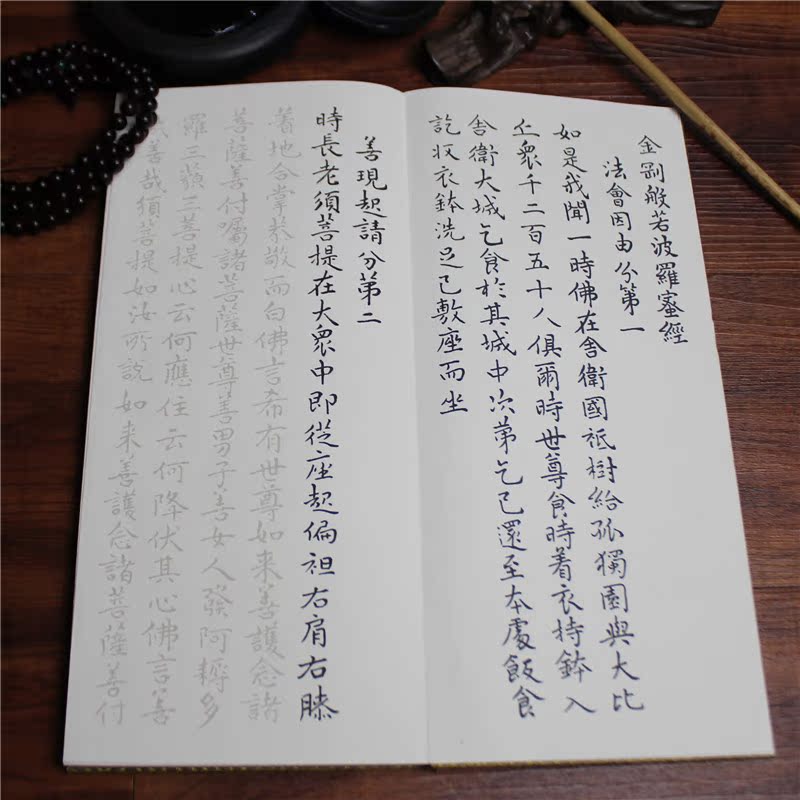 金剛般若波羅蜜經
法會因由分第一
如是我聞一時佛在舍衛國祇樹給孤獨園與大比
丘眾千二百五十人俱爾時世尊食時着衣持鉢入
舍衛大城乞食於其城中次第乞已還至本處飯食
訖收衣鉢洗足已敷座而坐
善現起請分第二
時長老須菩提在大眾中即從座起偏袒右肩右膝
着地合掌恭敬而白佛言希有世尊如来善護念諸
菩薩善付囑諸菩薩世尊善男子善女人發阿耨多
羅三藐三菩提心云何應住云何降伏其心佛言善
哉善哉須菩提如汝所說如来善護念諸菩薩善付